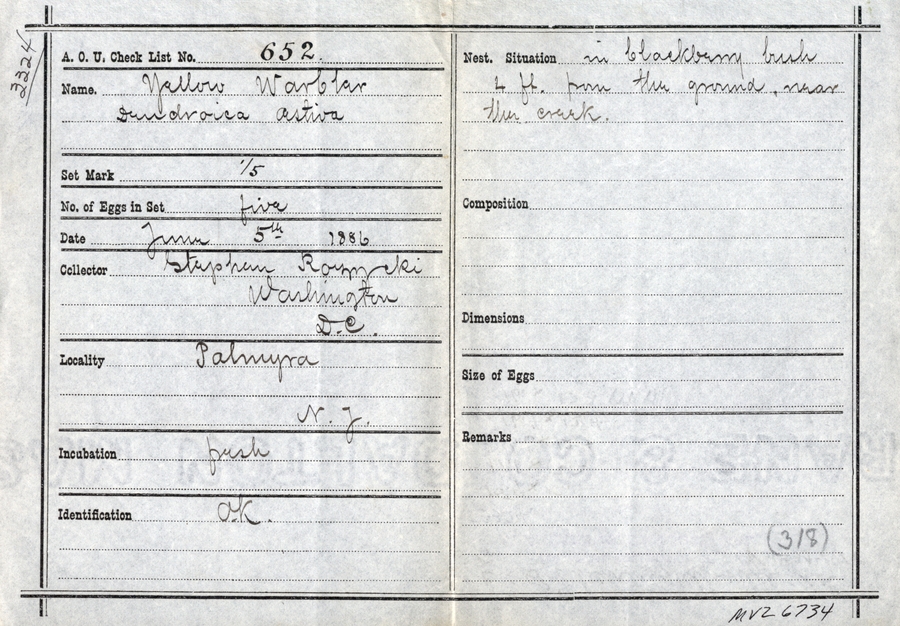 3224
A. O. U. Check List No. 652.
Name. Yellow Warbler
Dendroica æstiva
Set Mark 1/5
No. of Eggs in Set five
Date June 5th 1886
Collector Stephen
Washington
D.C.
Locality Palmyra
N. J.
Incubation fresh
Identification O.K.
Nest. Situation in blackberry bush
4 ft. from the ground, near
the creek.
Composition
Dimensions
Size of Eggs
Remarks
(318)
MVZ 6734